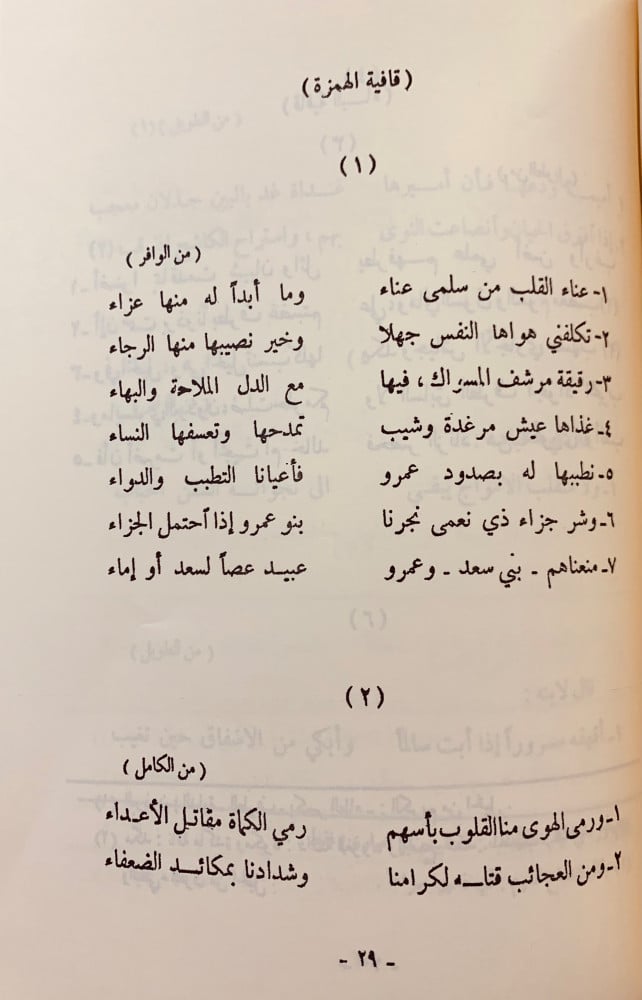 ( قافية الهمزة )
( ١ )
( من الوافر )
١- عناء القلب من سلمى عناء وما أبداً له منها عزاء
٢- تكلفني هواها النفس جهلا وخير نصيبها منها الرجاء
٣- رقيقة مرشف المسواك ، فيها مع الدل الملاحة والبهاء
٤- غذاها عيش مرغدة وشيب تمدحها وتعسفها النساء
٥- نطببها له بصدود عمرو فأعيانا التطبب والدواء
٦- وشر جزاء ذي نعمى نجرنا بنو عمرو إذا احتمل الجزاء
٧- منعناهم - بني سعد - وعمرو عبيد عصاً لسعد أو إماء
( ٢ )
( من الكامل )
١- ورمى الهوى منا القلوب بأسهم رمي الكماة مقاتل الأعداء
٢- ومن العجائب قتله لكرامنا وشدادنا بمكائد الضعفاء
- ٢٩ -